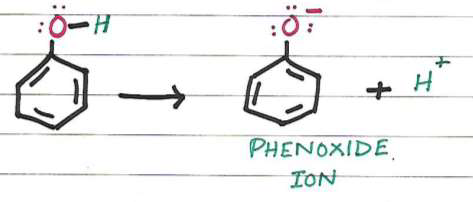 :Ö–H
:Ö:⁻
+ H⁺
PHENOXIDE.
ION